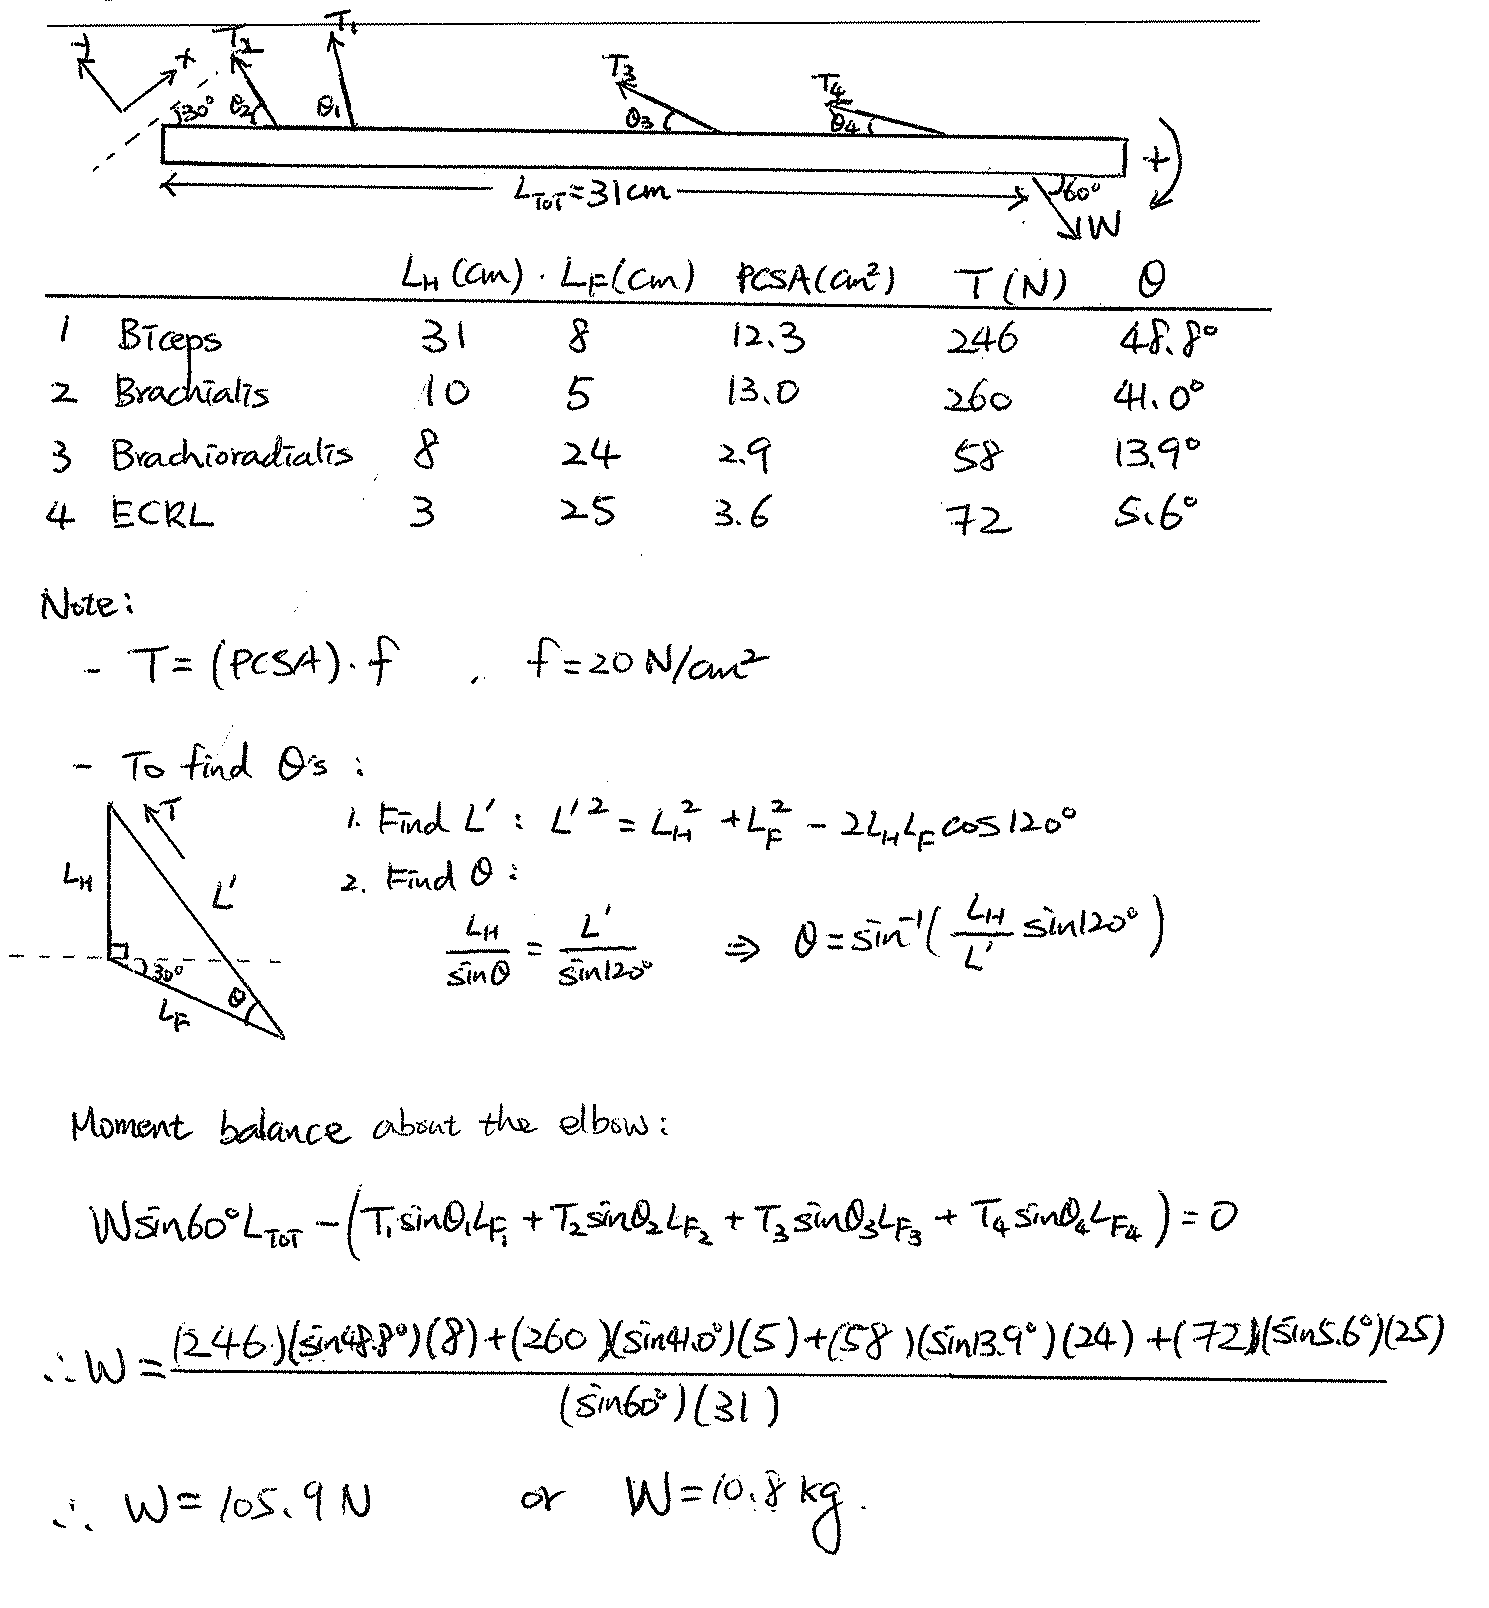 y x T₂ T₁ T₃ T₄
30° θ₂ θ₁ θ₃ θ₄ +
L_TOT = 31cm 60° W
L_H (cm) . L_F (cm) PCSA (cm²) T (N) θ
1 Biceps 31 8 12.3 246 48.8°
2 Brachialis 10 5 13.0 260 41.0°
3 Brachioradialis 8 24 2.9 58 13.9°
4 ECRL 3 25 3.6 72 5.6°
Note:
- T = (PCSA)·f , f = 20 N/cm²
- To find θ's :
1. Find L' : L'² = L_H² + L_F² - 2L_H L_F cos120°
2. Find θ :
L_H / sinθ = L' / sin120° ⇒ θ = sin⁻¹( L_H / L' sin120° )
T L_H L' 30° L_F θ
Moment balance about the elbow:
W sin60° L_TOT - (T₁ sinθ₁ L_F₁ + T₂ sinθ₂ L_F₂ + T₃ sinθ₃ L_F₃ + T₄ sinθ₄ L_F₄) = 0
∴ W = (246)(sin48.8°)(8) + (260)(sin41.0°)(5) + (58)(sin13.9°)(24) + (72)(sin5.6°)(25)
(sin60°)(31)
∴ W = 105.9 N or W = 10.8 kg.